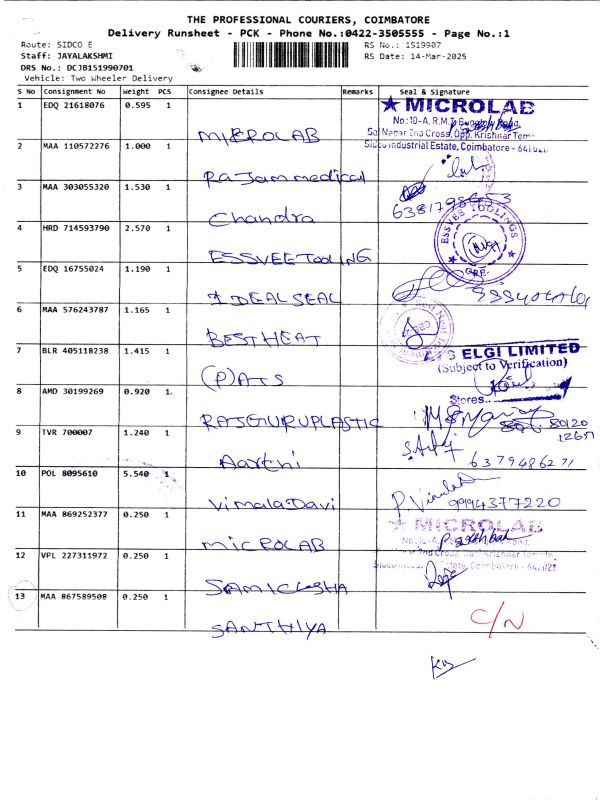 THE PROFESSIONAL COURIERS, COIMBATORE
Delivery Runsheet - PCK - Phone No.:0422-3505555 - Page No.:1
Route: SIDCO E RS No.: 1519907
Staff: JAYALAKSHMI RS Date: 14-Mar-2025
DRS No.: DCJB151990701
Vehicle: Two Wheeler Delivery
S No Consignment No Weight PCS Consignee Details Remarks Seal & Signature
1 EDQ 21618076 0.595 1 MICROLAB ★ MICROLAB
No:10-A, R.M.T. Bungalow Road,
Sai Nagar 2nd Cross, Opp. Krishnar Temple
Sidco Industrial Estate, Coimbatore - 641021
2 MAA 110572276 1.000 1 Rajam medical
3 MAA 303055320 1.530 1 Chandra
4 HRD 714593790 2.570 1 ESSVEE Tooling ESSVEE TOOLINGS CBE.
5 EDQ 16755024 1.190 1 IDEAL SEAL
6 MAA 576243787 1.165 1 BEST HEAT
7 BLR 405118238 1.415 1 (P)ATS ATS ELGI LIMITED
(Subject to Verification)
Stores..
8 AMD 30199269 0.920 1. RAJGURUPLASTIC
80120
9 TVR 700007 1.240 1 Aarthi
6379486271
10 POL 8095610 5.540 1 Vimala Davi P. Vimala
9994377220
11 MAA 869252377 0.250 1 MICROLAB ★ MICROLAB
12 VPL 227311972 0.250 1 SAMICKSHA
13 MAA 867589508 0.250 1 SANTHIYA C/N